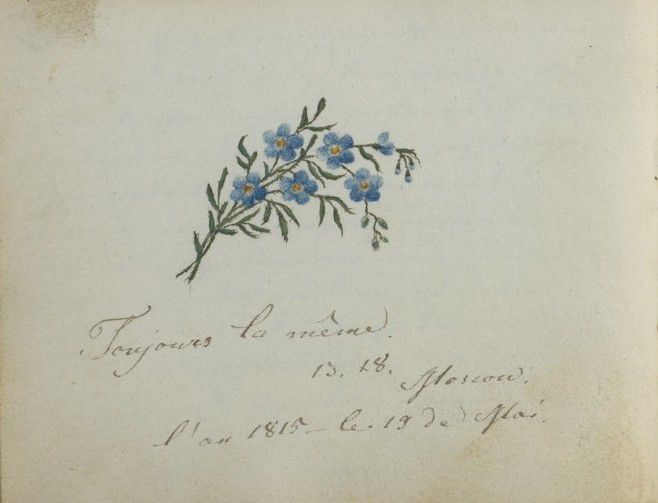 Toujours la même.
Moscou.
l'an 1815 – le 19 de Mai.